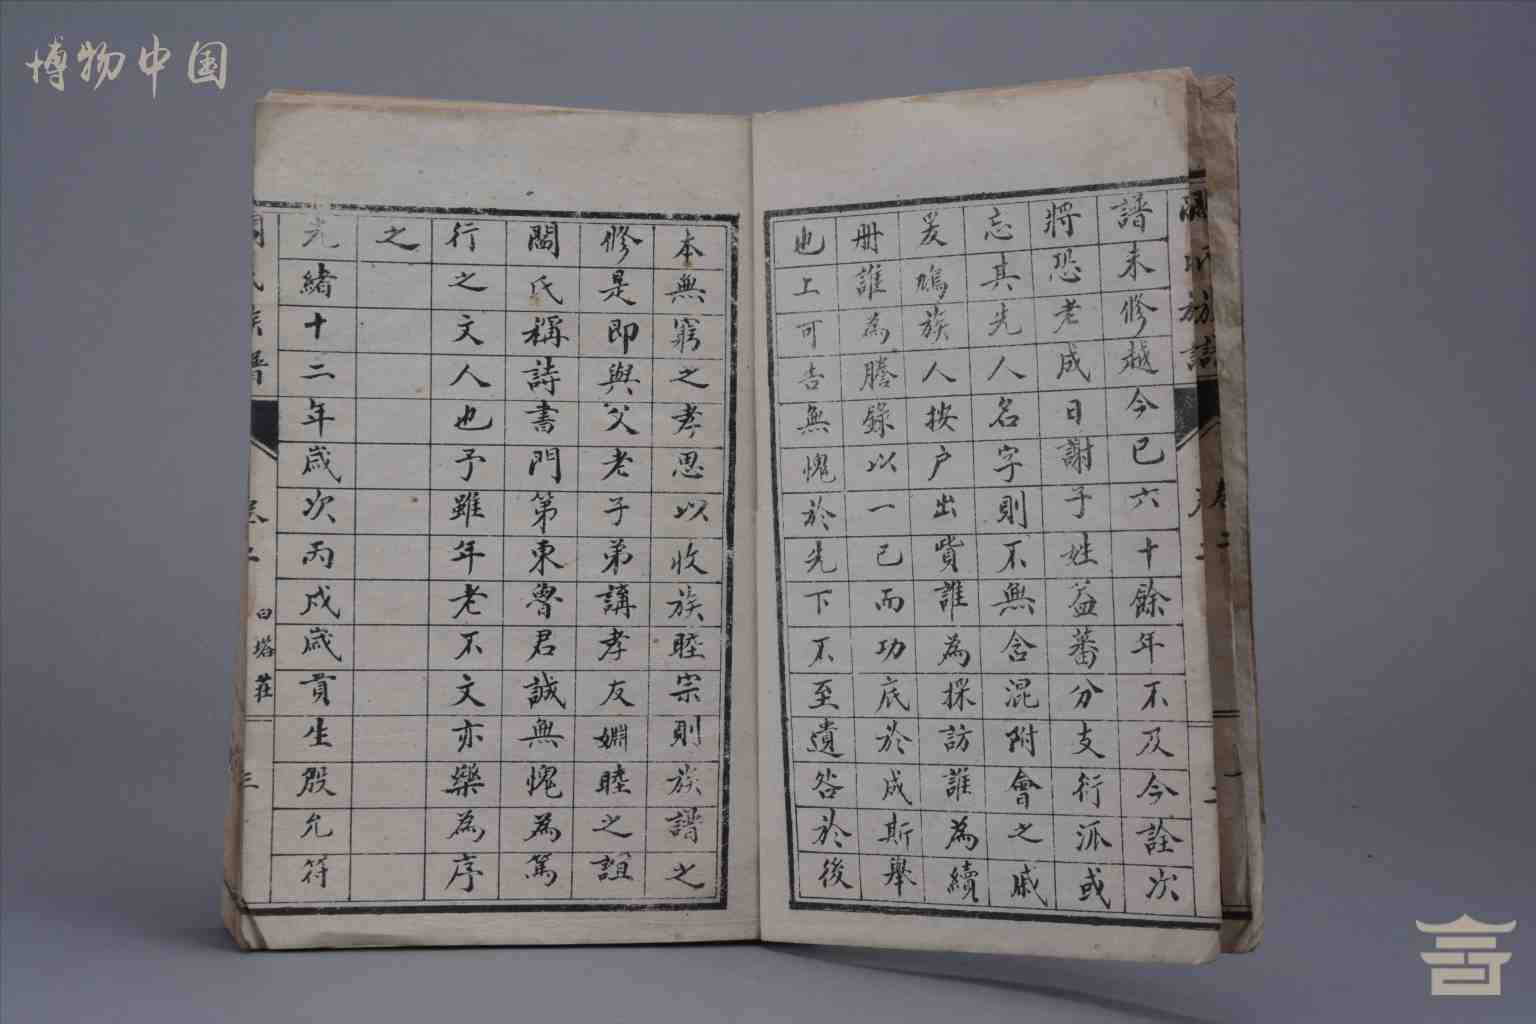 博物中国
譜未修越今已六十餘年不及今詮次
將恐老成日謝子姓益蕃分支衍派或
忘其先人名字則不無含混附會之戚
爰鳩族人按户出貲誰為採訪誰為續
册誰為謄錄以一己而功底於成斯舉
也上可告無愧於先下不至遺咎於後
本無窮之孝思以收族睦宗則族譜之
修是即與父老子弟講孝友婣睦之誼
閻氏稱詩書門第東魯君誠無愧為篤
行之文人也予雖年老不文亦樂為序
之
光緒十二年歲次丙戌歲貢生殷允符
氏族譜
卷二
白塔莊
三